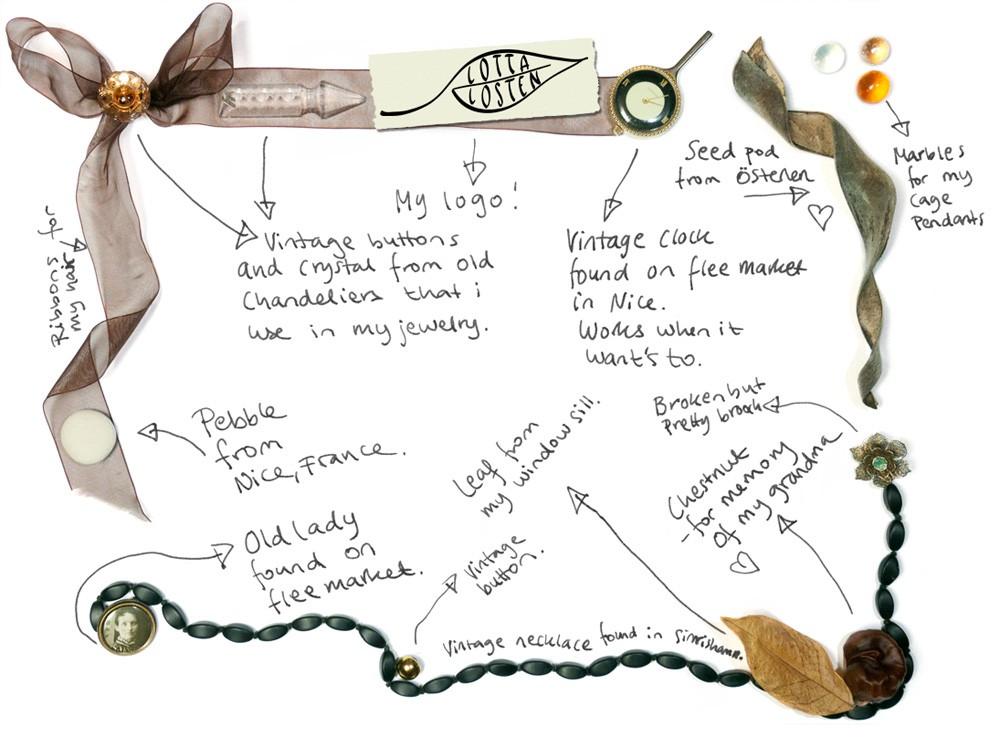 LOTTA
LOSTEN
My logo!
Seed pod
from Österlen
Marbles
for my
cage
pendants
Ribbons for
my hair
Vintage buttons
and crystal from old
Chandeliers that i
use in my jewelry.
Vintage clock
found on flee market
in Nice.
Works when it
want's to.
Pebble
from
Nice, France.
Leaf from
my window sill.
Broken but
Pretty brooch
Chestnut
- for memory
of my grandma
Old lady
found on
flee market.
Vintage
button.
Vintage necklace found in Simrishamn.